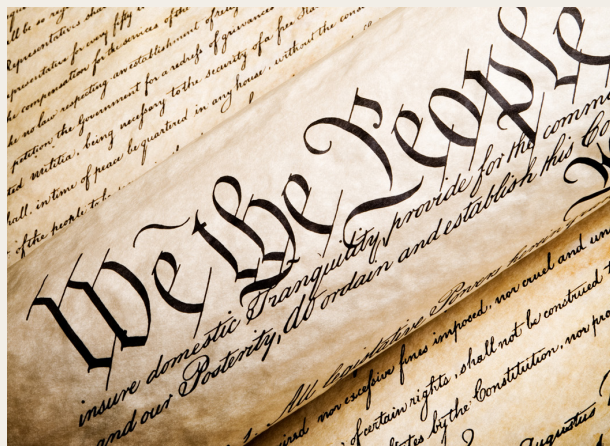 all be so
Representatives shall
presentative for every fifty
compensation for services of the
be no law respecting an establishment of relig
petition the Government for a redress of grievances
ted militia, being necessary to the security of a free Sta
hall, in time of peace be quartered in any house, without the cons
of the people to be
We the People
insure domestic Tranquility, provide for the comm
and our Posterity, do ordain and establish this Co
All legislative Powers herein
uired nor excessive fines imposed, nor cruel and unu
of certain rights, shall not be construed t
tates by the Constitution, nor pro
Augustus